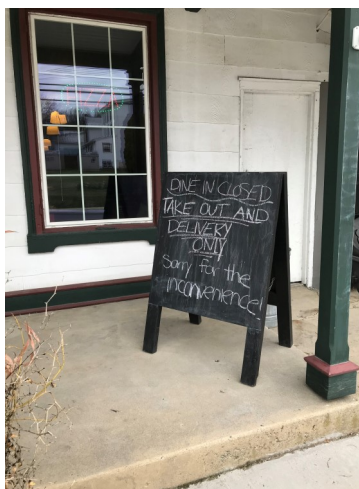 DINE IN CLOSED
TAKE OUT AND
DELIVERY
ONLY
Sorry for the
inconvenience!